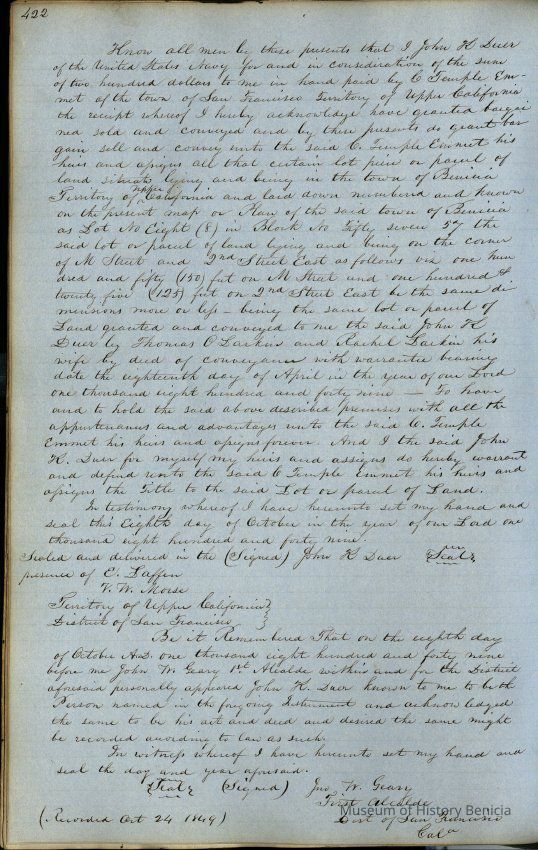 422
Know all men by these presents that I John K Duer
of the United States Navy for and in consideration of the sum
of two hundred dollars to me in hand paid by C Temple Em-
met of the town of San Francisco Territory of Upper California
the receipt whereof I hereby acknowledge have granted bargai
ned sold and conveyed and by these presents do grant bar
gain sell and convey unto the said C. Temple Emmet his
heirs and assigns all that certain lot piece or parcel of
land situate lying and being in the town of Benicia
Territory of Upper California and laid down numbered and known
on the present map or Plan of the said town of Benicia
as Lot No Eight (8) in Block No Fifty seven 57 the
said lot or parcel of land lying and being on the corner
of M Street and 2nd Street East as follows viz one hun
dred and fifty (150) feet on M Street and one hundred &
twenty five (125) feet on 2nd Street East be the same di
mensions more or less - being the same lot or parcel of
Land granted and conveyed to me the said John K
Duer by Thomas O Larkin and Rachel Larkin his
wife by deed of conveyance with warrantee bearing
date the eighteenth day of April in the year of our Lord
one thousand eight hundred and forty nine — To have
and to hold the said above described premises with all the
appurtenances and advantages unto the said C. Temple
Emmet his heirs and assigns forever. And I the said John
K. Duer for myself my heirs and assigns do hereby warrant
and defend unto the said C Temple Emmet his heirs and
assigns the Title to the said Lot or parcel of Land.
In testimony whereof I have hereunto set my hand and
seal this Eighth day of October in the year of our Lord one
thousand eight hundred and forty nine.
Sealed and delivered in the (Signed) John K Duer Seal
presence of E. Laffen
V. W. Morse
Territory of Upper California }
District of San Francisco }
Be it Remembered That on the eighth day
of October A.D. one thousand eight hundred and forty nine
before me John W. Geary 1st Alcalde within and for the District
aforesaid personally appeared John K. Duer known to me to be the
Person named in the foregoing Instrument and acknowledged
the same to be his act and deed and desired the same might
be recorded according to law as such.
In witness whereof I have hereunto set my hand and
seal the day and year aforesaid.
Seal (Signed) Jno W. Geary
First Alcalde
(Recorded Oct 24 1849) Dist of San Francisco
Cala
Museum of History Benicia